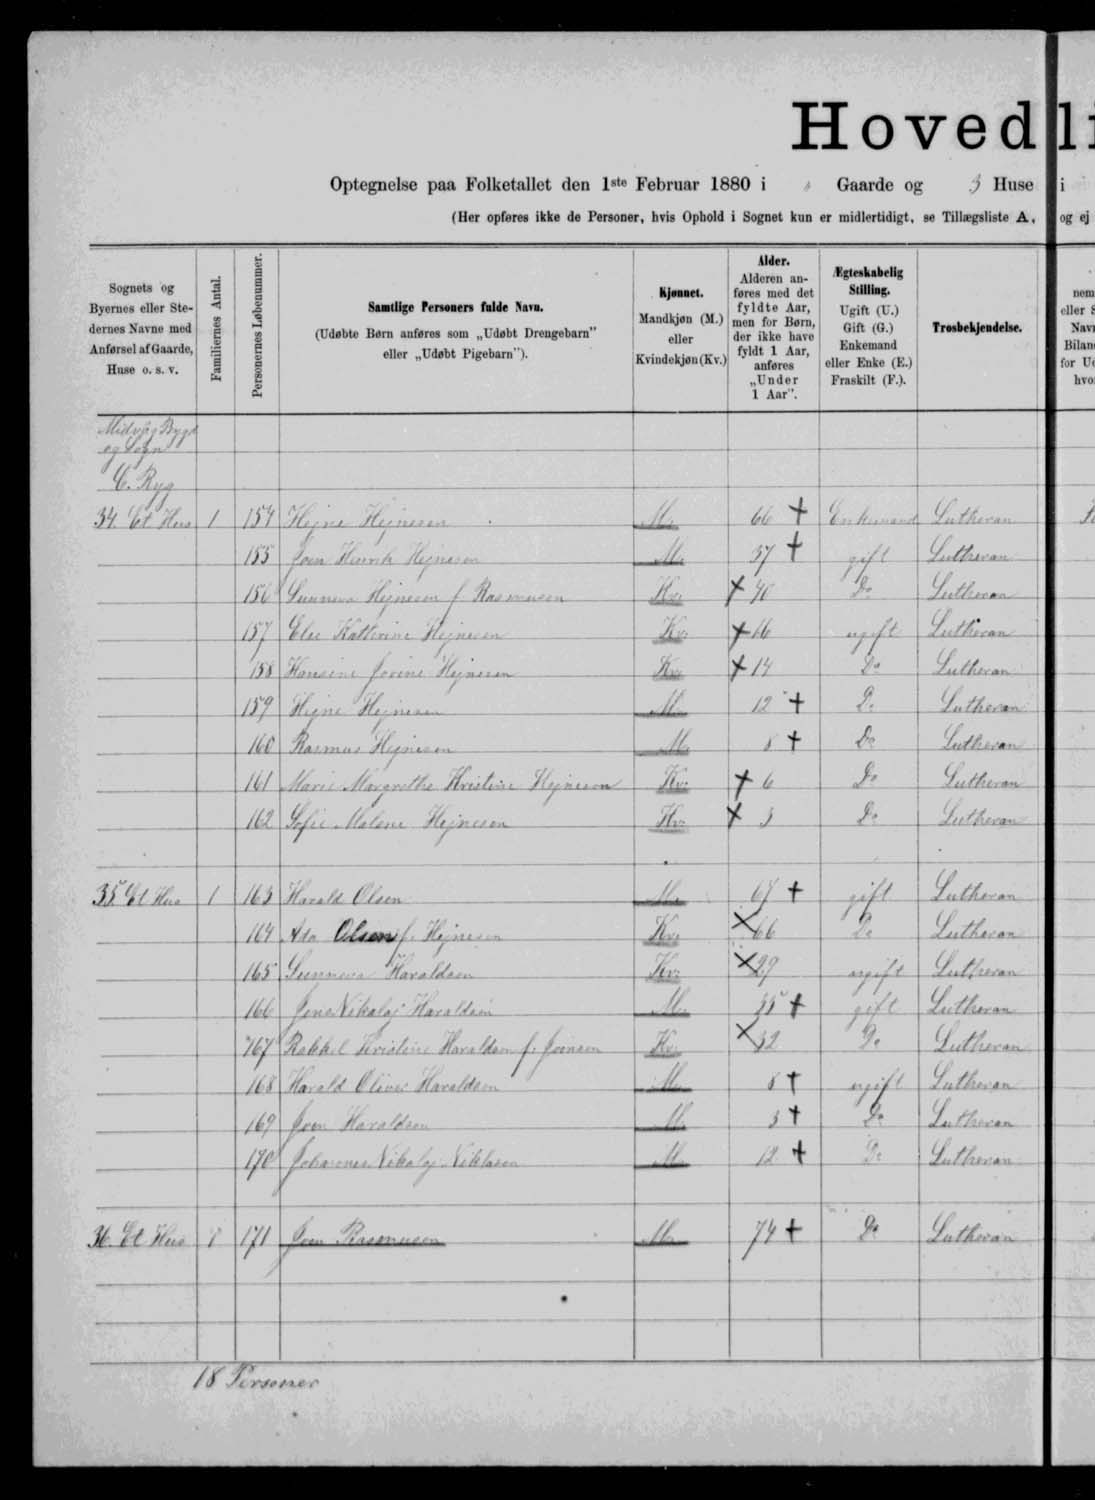 Hovedli
Optegnelse paa Folketallet den 1ste Februar 1880 i Gaarde og 3 Huse i
(Her opføres ikke de Personer, hvis Ophold i Sognet kun er midlertidigt, se Tillægsliste A, og ej
Sognets og Byernes eller Stedernes Navne med Anførsel af Gaarde, Huse o. s. v.
Familiernes Antal.
Personernes Løbenummer.
Samtlige Personers fulde Navn.
(Udøbte Børn anføres som „Udøbt Drengebarn" eller „Udøbt Pigebarn").
Kjønnet.
Mandkjøn (M.) eller Kvindekjøn (Kv.)
Alder.
Alderen anføres med det fyldte Aar, men for Børn, der ikke have fyldt 1 Aar, anføres „Under 1 Aar".
Ægteskabelig Stilling.
Ugift (U.) Gift (G.) Enkemand eller Enke (E.) Fraskilt (F.).
Trosbekjendelse.
Midvåg Bygd
og Sogn
C. Ryg
34. Et Hus 1 154 Hejne Hejnesen M. 66 + Enkemand Lutheran
155 Joen Henrik Hejnesen M. 37 + gift Lutheran
156 Sunneva Hejnesen f. Rasmusen Kv. + 40 Do Lutheran
157 Else Kathrine Hejnesen Kv. + 16 ugift Lutheran
158 Hansine Jovine Hejnesen Kv. + 14 Do Lutheran
159 Hejne Hejnesen M. 12 + Do Lutheran
160 Rasmus Hejnesen M. 8 + Do Lutheran
161 Marie Margrethe Kristine Hejnesen Kv. + 6 Do Lutheran
162 Sofie Malene Hejnesen Kv. + 3 Do Lutheran
35. Et Hus 1 163 Harald Olsen M. 67 + gift Lutheran
164 Ada Olsen f. Hejnesen Kv. × 66 Do Lutheran
165 Sunneva Haraldsen Kv. × 29 ugift Lutheran
166 Jens Nikolaj Haraldsen M. 35 + gift Lutheran
167 Rakkel Kristine Haraldsen f. Joensen Kv. × 32 Do Lutheran
168 Harald Oliver Haraldsen M. 8 + ugift Lutheran
169 Joen Haraldsen M. 3 + Do Lutheran
170 Johannes Nikolaj Niklasen M. 12 + Do Lutheran
36. Et Hus 1 171 Joen Rasmusen M. 74 + Do Lutheran
18 Personer